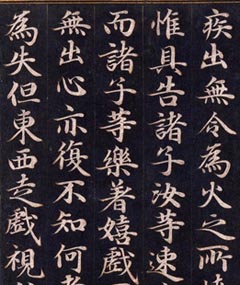 疾出無令為火之所
惟具告諸子汝等速
而諸子等樂着嬉戲
無出心亦復不知何
為失但東西走戲視